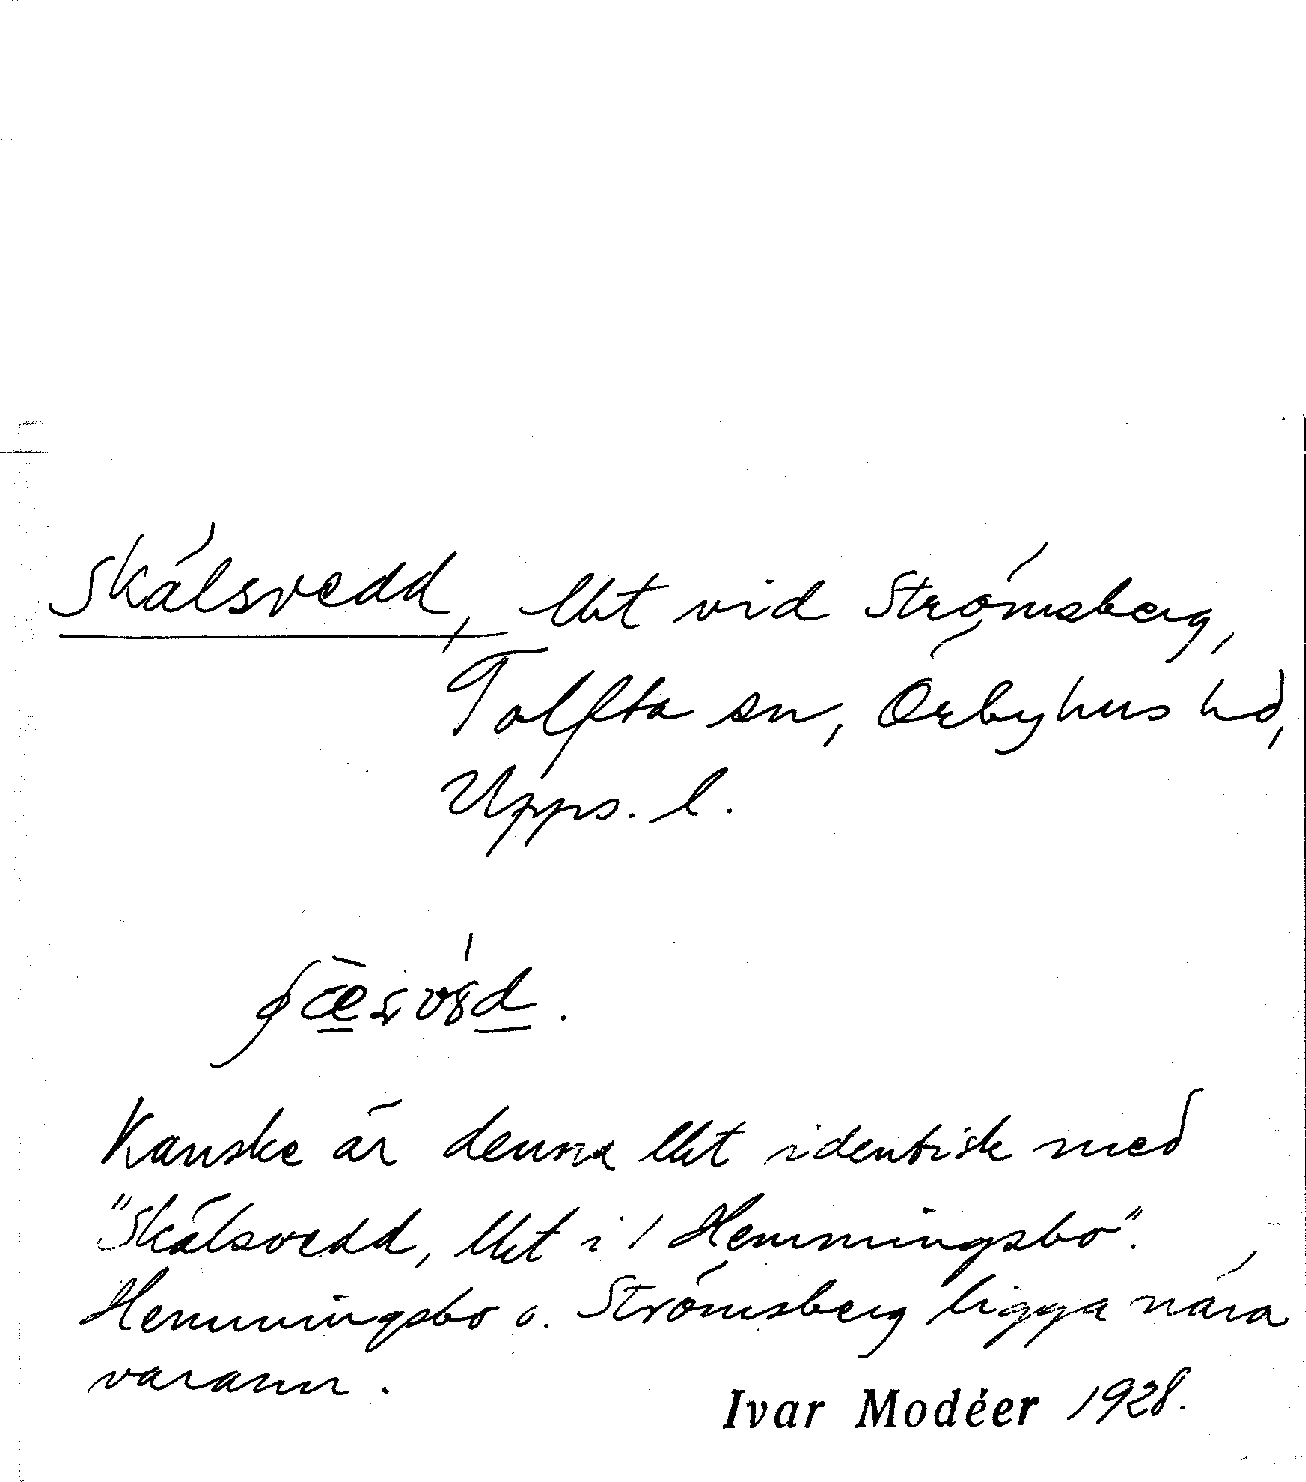 Skälsvedd, lht vid Strömsberg,
Tolfta sn, Örbyhus hd,
Upps. l.
Kanske är denna lht identisk med
"Skälsvedd, lht i / Hemmingsbo".
Hemmingsbo o. Strömsberg ligga nära
varann.
Ivar Modéer 1928.